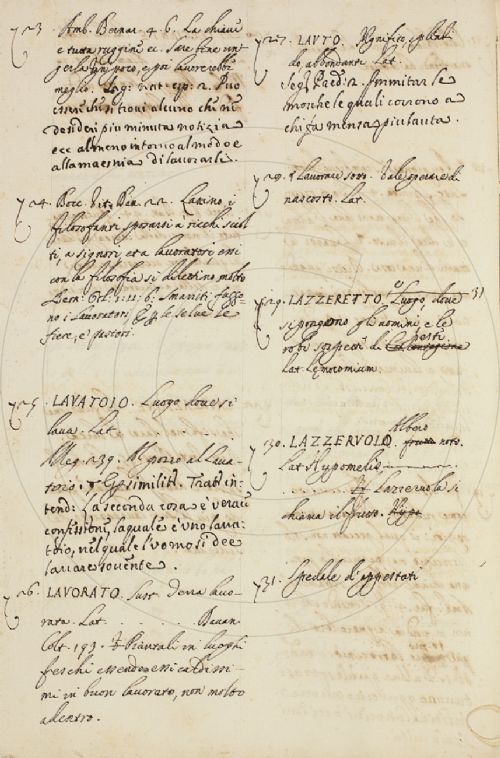 723. Amb. Bernar. 4. 6. La chiave
è tutta ruggine ec. fare fine un
gerla un poco, e poi lavorerebbe
meglio. Sag: nat: esp: 2. Può
essere che si trovi alcuno che
desideri più minuta notizia
ec e almeno intorno al modo e
alla maestria di lavorarli.
724. Bocc. Vit: Dan. 22. Lascino i
filosofanti sposarsi a ricchi stol
ti, a signori, et a lavoratori essi
con la filosofia si dilettino molto
Bern: Orl: 1: 11: 6. Smarriti
no i lavoratori le selve le
fiere, e pastori.
725. LAVATOIO. Luogo dove si
lava. Lat. . . . . . .
Alleg. 239. Al pozzo al lava
toio. ¶ E per similit: Tratt: in-
tend: La seconda cosa è verace
confessione, la quale è uno lava-
toio, nel quale l'uomo si dee
lavare sovente.
726. LAVORATO. Sust. Terra lavo-
rata. Lat. . . . . . . Davan.
Colt. 193. Piantali in luoghi
freschi essendo essi caldissi-
mi in buon lavorato, non molto
adentro.
727. LAUTO. Magnifico, splendi-
do, abbondante. Lat.
Segn: Pred: 2. Ammitar le
mosche le quali corono a
chi fa mensa più lauta.
728. ¶ Lavorare sotto. Vale operare di
nascosto. Lat.
729. LAZZERETTO. Luogo, dove 31
si pongono gli uomini, e le
robe sospetti di peste
Lat. Lemocomium.
Albero
730. LAZZERUOLO. noto.
Lat. Hypomelis
. . . . . Lazzeruola si
chiama il frutto.
731. Spedale d'appestati